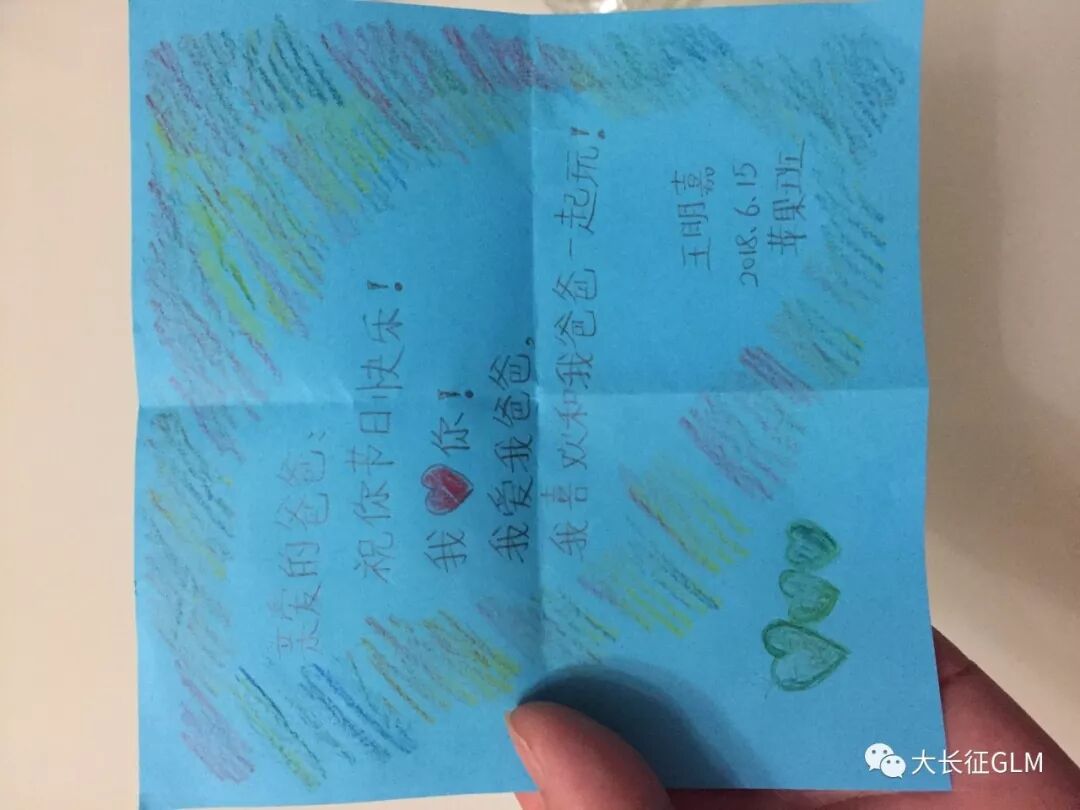 亲爱的爸爸:
祝你节日快乐!
我你!
我爱我爸爸。
我喜欢和我爸爸一起玩!
王明嘉
2018.6.15
苹果班
大长征GLM